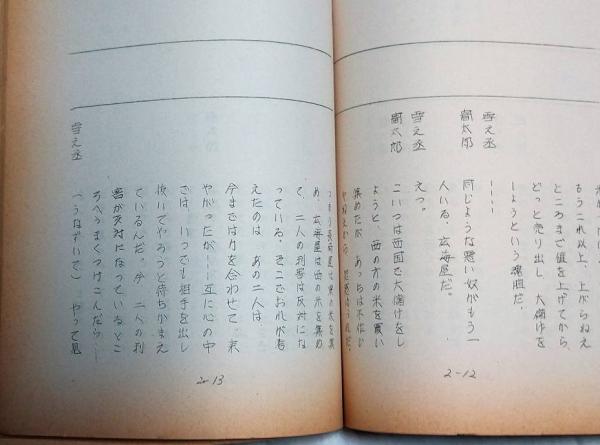 もうこれ以上、上がらねえ
ところまで値を上げてから、
どっと売り出し、大儲けを
しようという魂胆だ。
雪之丞 ……
闇太郎 同じような悪い奴がもう一
人いる。玄海屋だ。
雪之丞 えっ。
闇太郎 こいつは西国で大儲けをし
ようと、西の方の米を買い
集めたが、あっちは不作じ
め、玄海屋は西の米を集め
て、二人の利害は反対にな
っている。そこでおれが考
えたのは、あの二人は
今までは力を合わせて、来
やがったが……互に心の中
では、いつでも相手を出し
抜いてやろうと待ちかまえ
ているんだ。今、二人の利
害が反対になっているとこ
ろへうまくつけこんだら……
雪之丞 (うなずいて) やって見
2-12
2-13